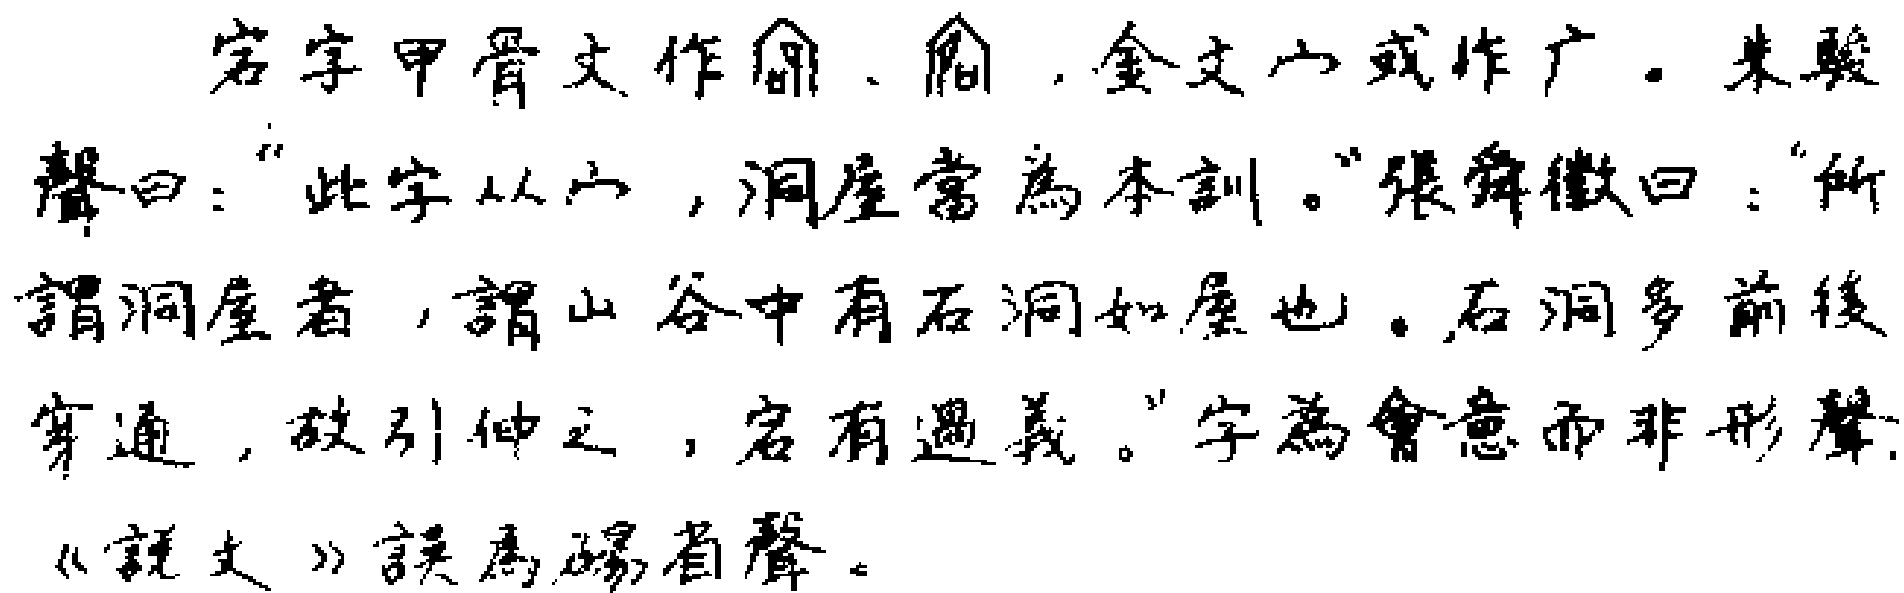 宕字甲骨文作、、金文宀或作广。朱駿
聲曰：“此字从宀，洞屋當為本訓。”張舜徽曰：“所
謂洞屋者，謂山谷中有石洞如屋也。石洞多前後
穿通，故引伸之，宕有過義。”字為會意而非形聲.
《說文》誤為碭省聲。